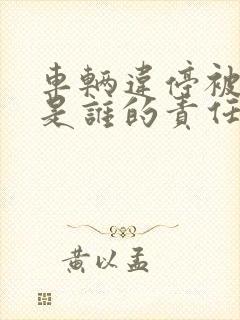 車輛違停被
是誰的責任
黃以孟